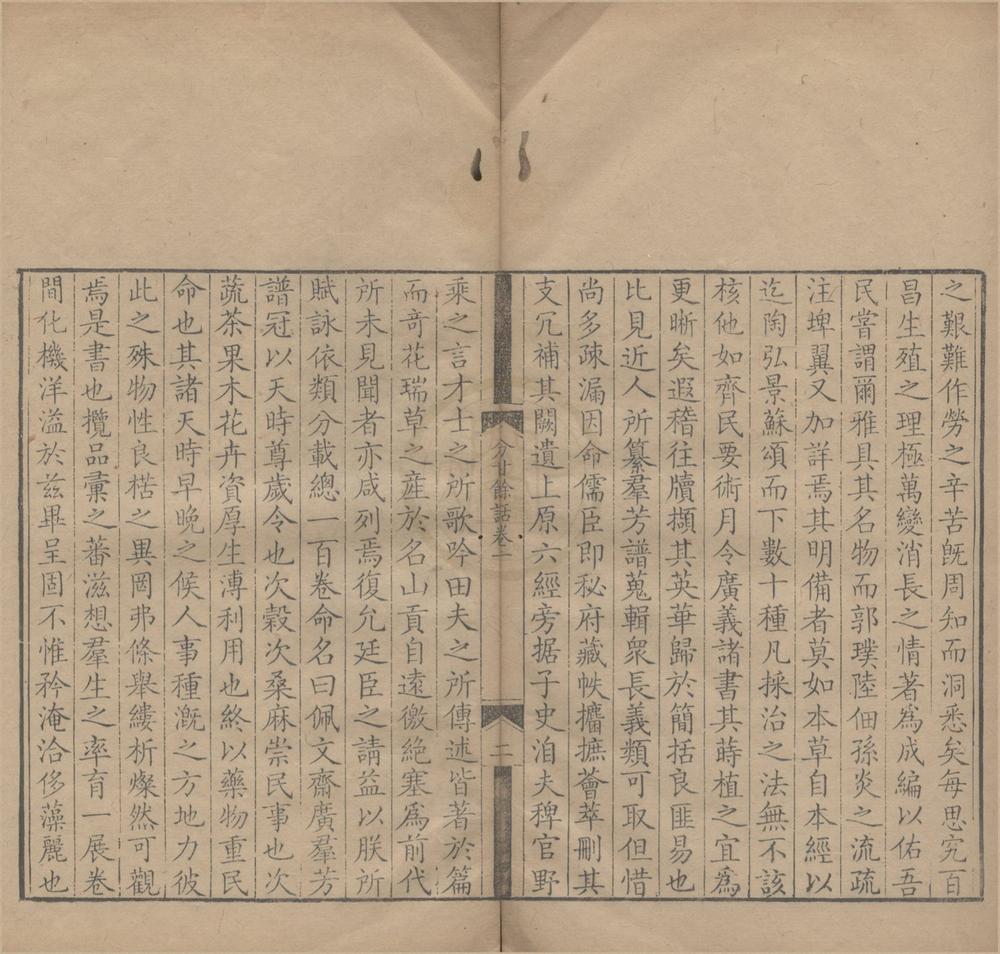 之艱難作勞之辛苦既周知而洞悉矣每思究百
昌生殖之理極萬變消長之情著爲成編以佑吾
民嘗謂爾雅具其名物而郭璞陸佃孫炎之流疏
注埤翼又加詳焉其明備者莫如本草自本經以
迄陶弘景蘇頌而下數十種凡採治之法無不該
核他如齊民要術月令廣義諸書其蒔植之宜爲
更晰矣遐稽往牘擷其英華歸於簡括良匪易也
比見近人所纂羣芳譜蒐輯衆長義類可取但惜
尚多疎漏因命儒臣即秘府藏帙攟摭薈萃刪其
支冗補其闕遺上原六經旁据子史洎夫稗官野
分甘餘話卷二
二
乘之言才士之所歌吟田夫之所傳述皆著於篇
而奇花瑞草之產於名山貢自遠徼絕塞爲前代
所未見聞者亦咸列焉復允廷臣之請益以朕所
賦詠依類分載總一百卷命名曰佩文齋廣羣芳
譜冠以天時尊歲令也次穀次桑麻崇民事也次
蔬茶果木花卉資厚生溥利用也終以藥物重民
命也其諸天時早晚之候人事種溉之方地力彼
此之殊物性良楛之異罔弗條舉縷析燦然可觀
焉是書也攬品彙之蕃滋想羣生之率育一展卷
間化機洋溢於茲畢呈固不惟矜淹洽侈藻麗也